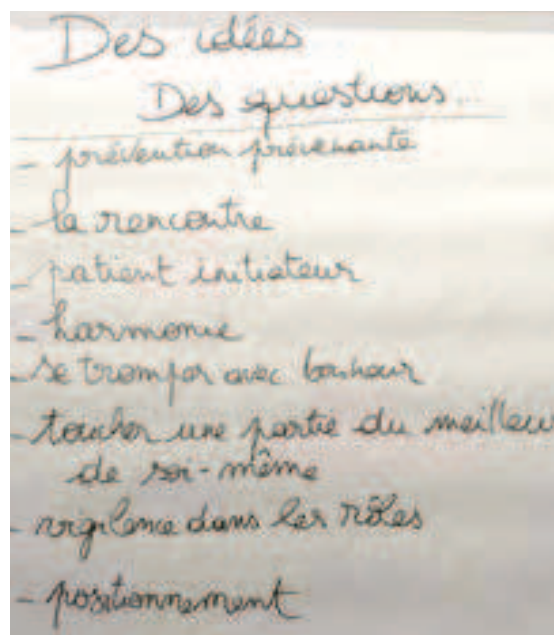 Des idées
Des questions...
- prévention prévenante
- la rencontre
- patient initiateur
- harmonie
- se tromper avec bonheur
- toucher une partie du meilleur
de soi-même
- vigilance dans les rôles
- positionnement